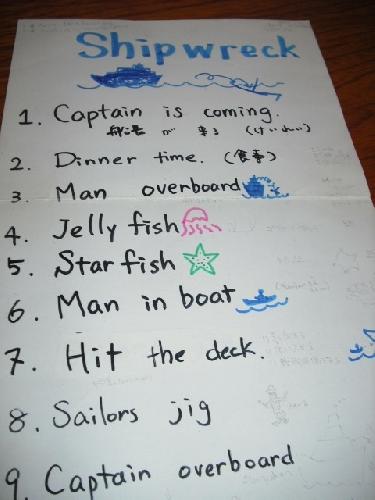 Shipwreck
1. Captain is coming.
船長 が 来る (けいれい)
2. Dinner time. (食事)
3. Man overboard
4. Jelly fish
5. Star fish
6. Man in boat
7. Hit the deck.
8. Sailors jig
9. Captain overboard